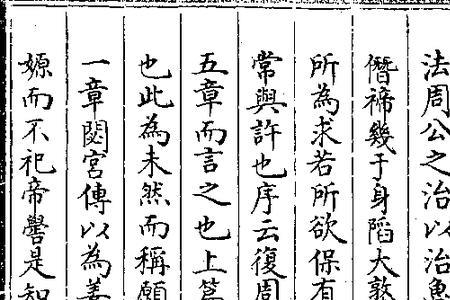 法周公之治以治魯
僭禘幾于身陷大敦
所為求若所欲保有
常與許也序云復周
五章而言之也上篇
也此為未然而稱願
一章閟宮傳以為姜
嫄而不祀帝嚳是知